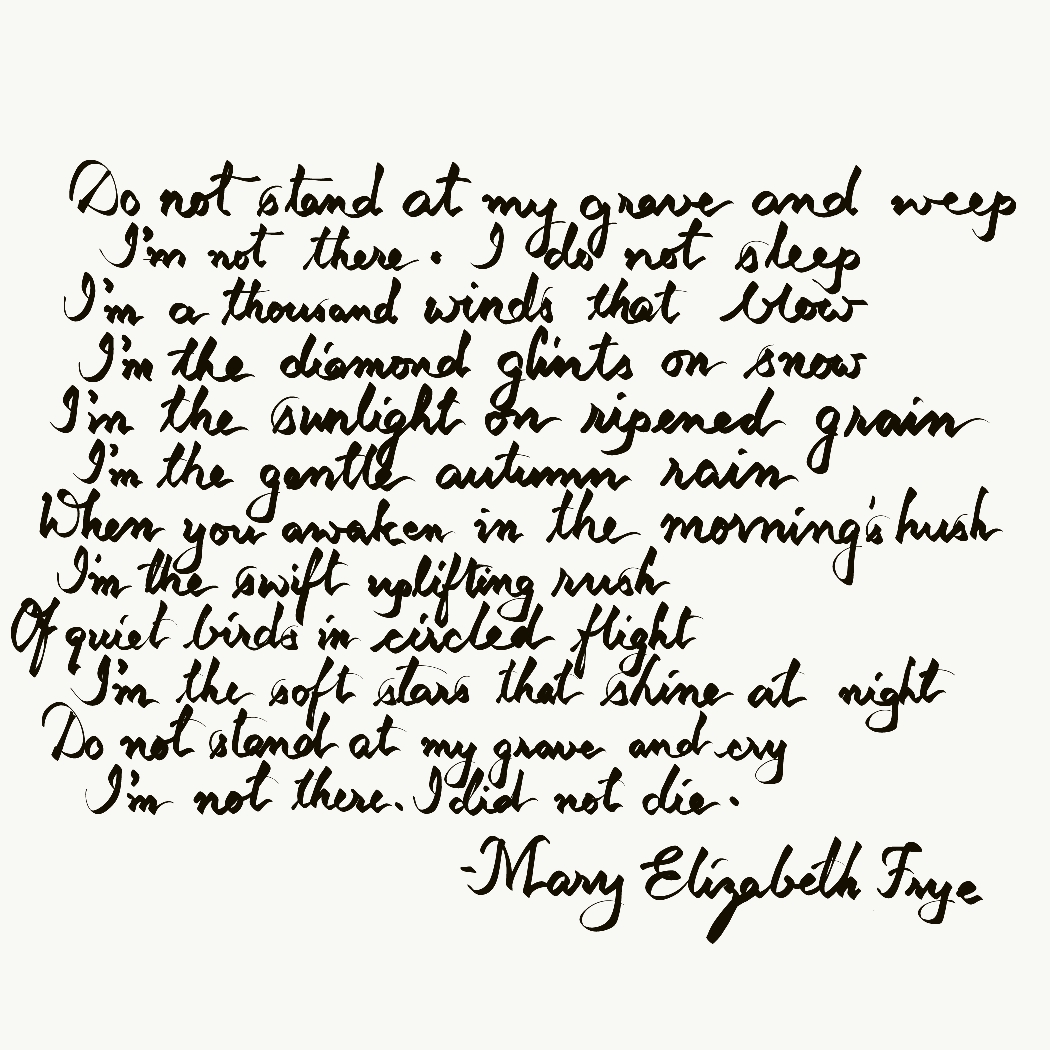 Do not stand at my grave and weep
I'm not there. I do not sleep
I'm a thousand winds that blow
I'm the diamond glints on snow
I'm the sunlight on ripened grain
I'm the gentle autumn rain
When you awaken in the morning's hush
I'm the swift uplifting rush
Of quiet birds in circled flight
I'm the soft stars that shine at night
Do not stand at my grave and cry
I'm not there. I did not die.
-Mary Elizabeth Frye